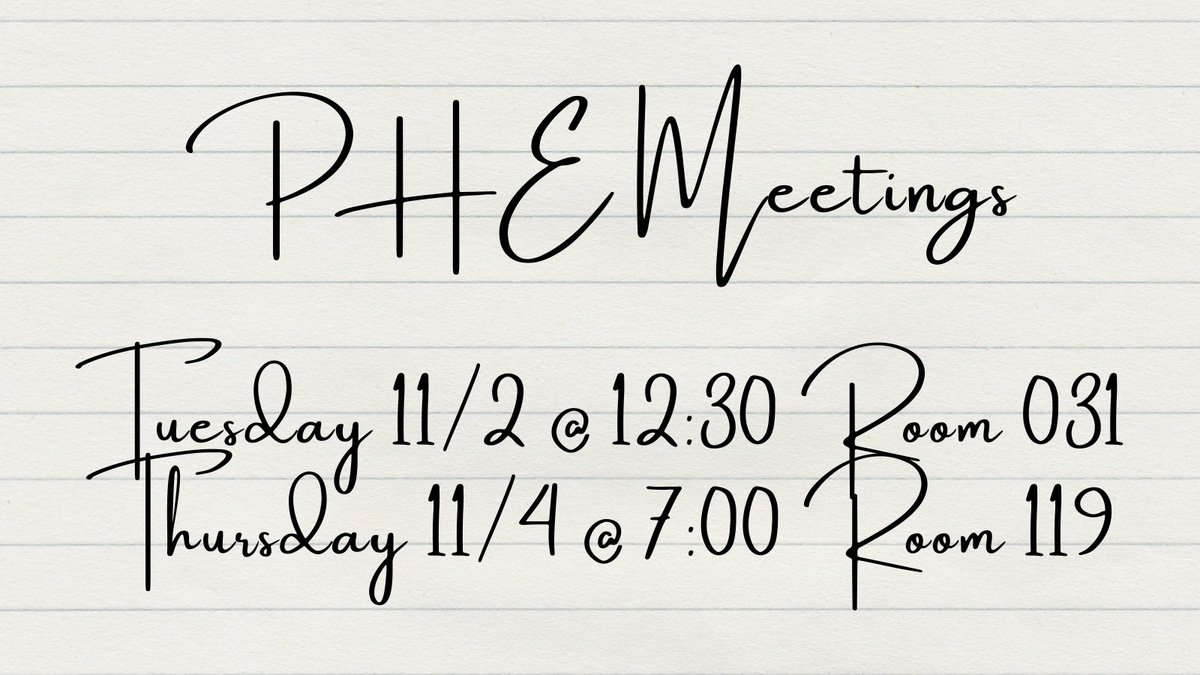 PHE Meetings
Tuesday 11/2 @ 12:30 Room 031
Thursday 11/4 @ 7:00 Room 119